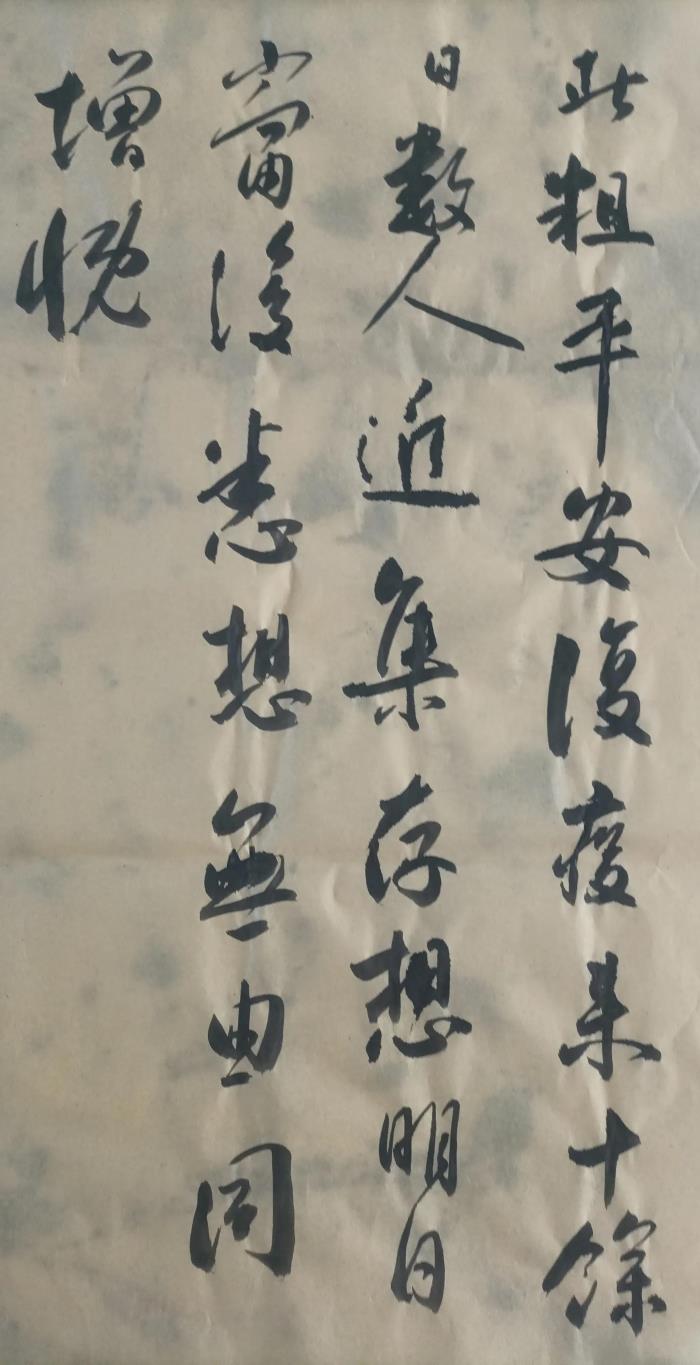 此粗平安復瘦来十餘
日数人近集存想明日
當復悉想無由同
增慨